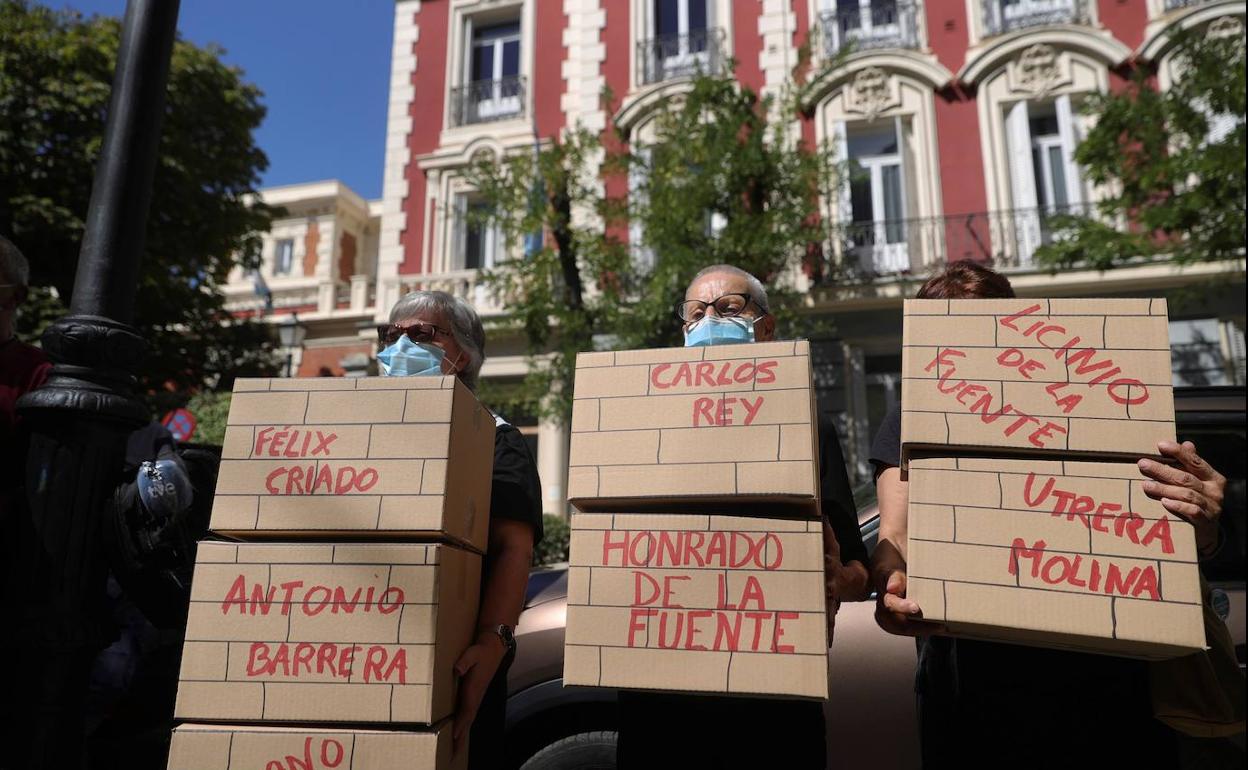 FÉLIX
CRIADO
ANTONIO
BARRERA
CARLOS
REY
HONRADO
DE LA
FUENTE
LICINIO
DE LA
FUENTE
UTRERA
MOLINA
rtve